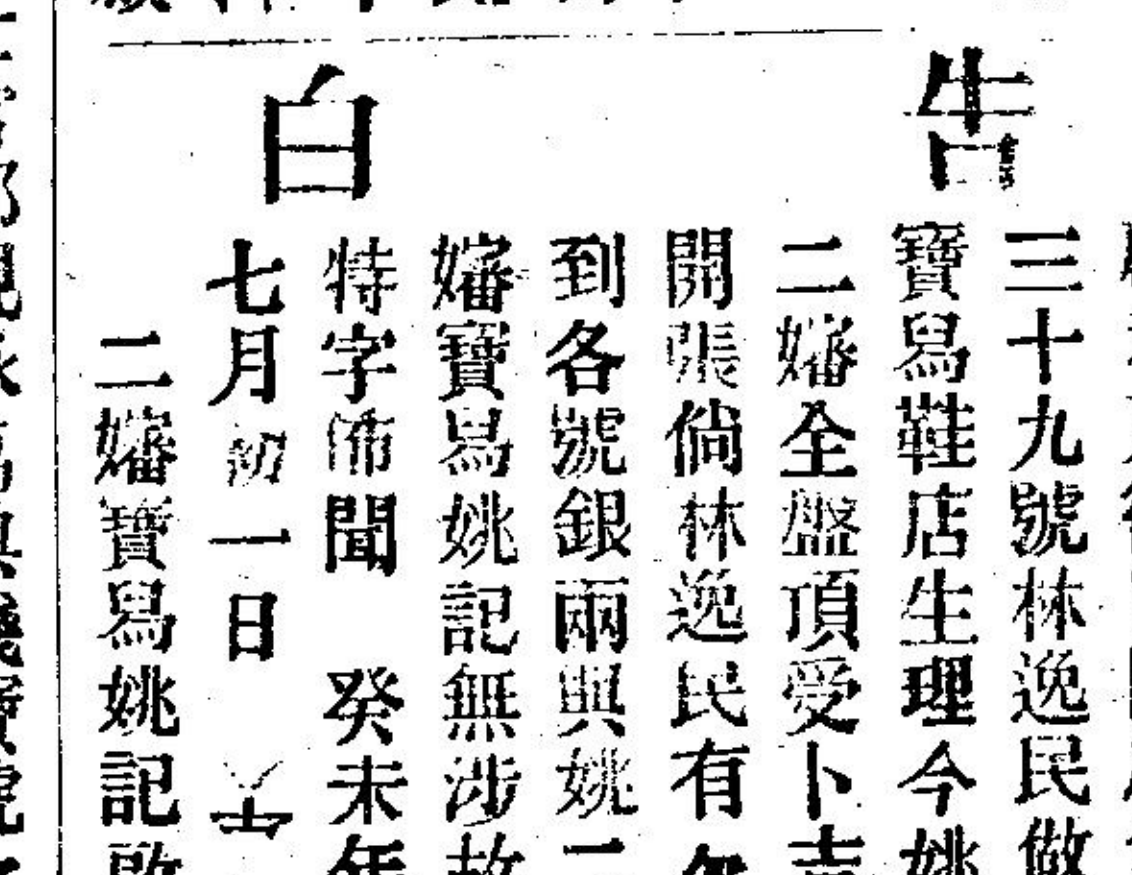 告白
三十九號林逸民做
寶舄鞋店生理今姚
二嬸全盤頂受卜吉
開張倘林逸民有欠
到各號銀兩與姚二
嬸寶舄姚記無涉故
特字佈聞 癸未年
七月初一日
二嬸寶舄姚記啟